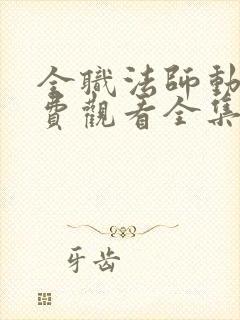 全職法師動
費觀看全集
牙齿